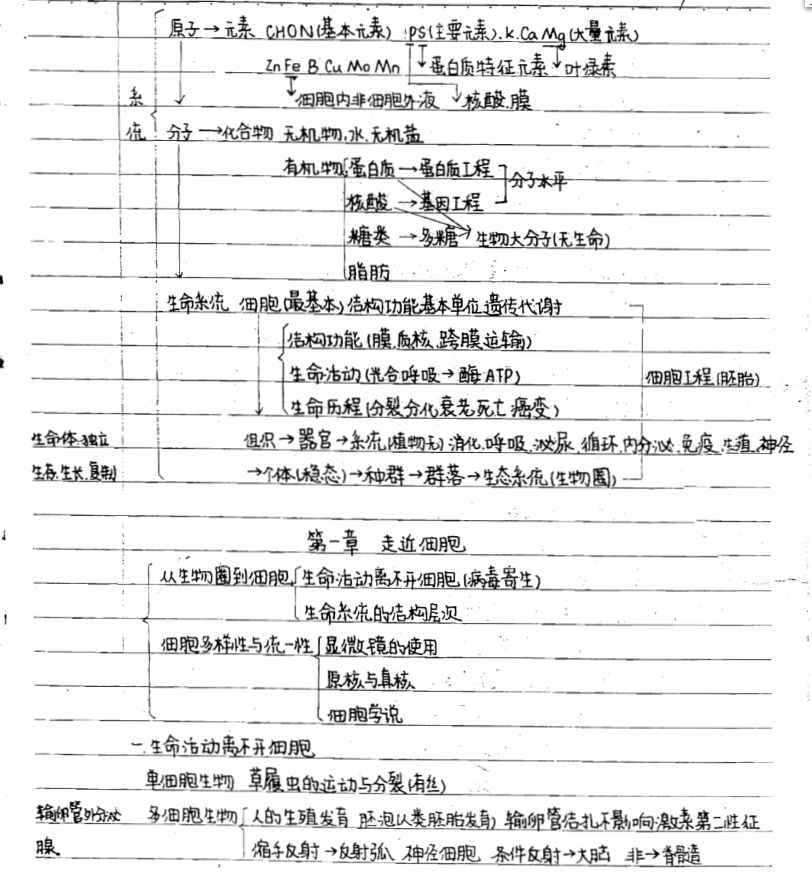 原子→元素 CHON(基本元素) PS(主要元素).K.CaMg(大量元素)
ZnFe B Cu Mo Mn 蛋白质特征元素 叶绿素
系 细胞内非细胞外液 核酸.膜
统 分子→化合物 无机物,水.无机盐
有机物 蛋白质→蛋白质工程
分子水平
核酸→基因工程
糖类→多糖 生物大分子(无生命)
脂肪
生命系统 细胞(最基本)结构功能基本单位.遗传代谢
结构功能(膜.质核.跨膜运输)
生命活动(光合呼吸→酶.ATP) 细胞工程(胚胎)
生命历程(分裂分化衰老死亡.癌变)
生命体.独立 组织→器官→系统(植物无)消化.呼吸.泌尿.循环.内分泌.免疫.生殖.神经
生存.生长.复制 →个体(稳态)→种群→群落→生态系统(生物圈)
第一章 走近细胞
从生物圈到细胞 生命活动离不开细胞(病毒寄生)
生命系统的结构层次
细胞多样性与统一性 显微镜的使用
原核与真核
细胞学说
一.生命活动离不开细胞
单细胞生物 草履虫的运动与分裂(有丝)
输卵管外分泌 多细胞生物 人的生殖发育 胚泡(人类胚胎发育) 输卵管结扎不影响激素第二性征
腺 缩手反射→反射弧 神经细胞 条件反射→大脑 非→脊髓